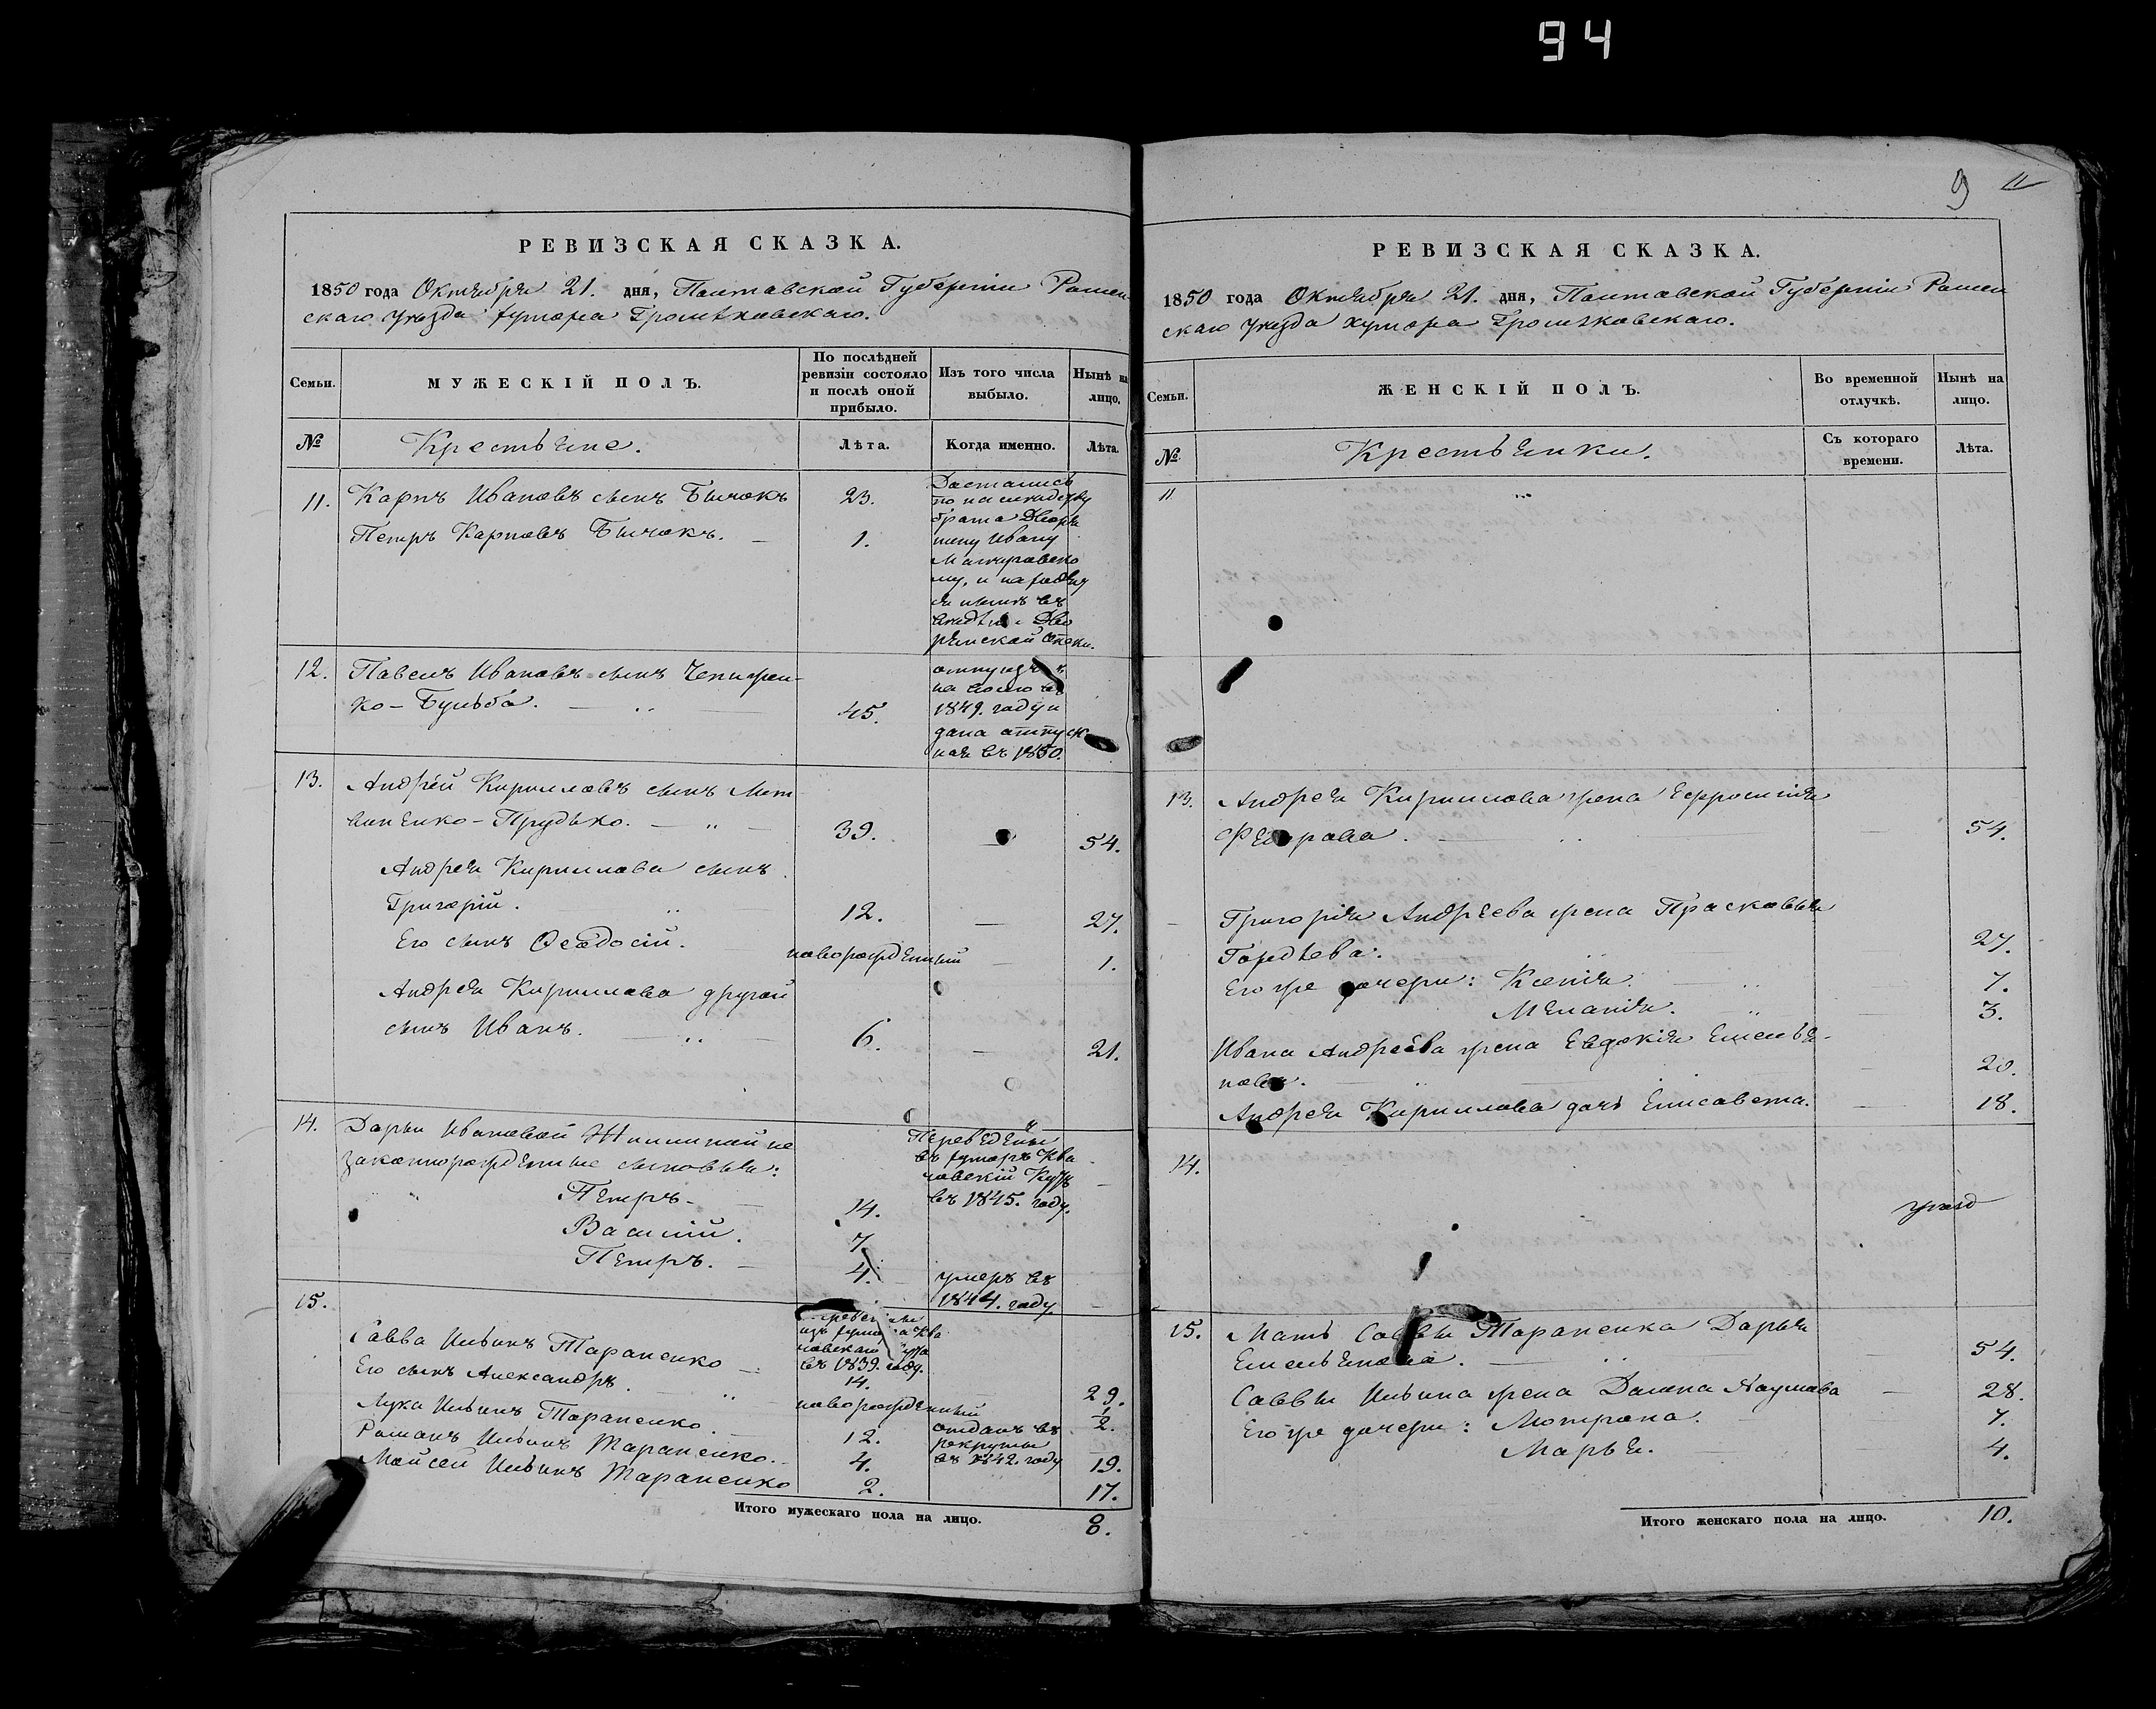 94
9 11
РЕВИЗСКАЯ СКАЗКА.
1850 года Октября 21. дня, Полтавской Губерніи Ромен
скаго Уѣзда хутора Громѣковскаго.
Семьи.
МУЖЕСКІЙ ПОЛЪ.
По послѣдней
ревизіи состояло
и послѣ оной
прибыло.
Изъ того числа
выбыло.
Нынѣ на
лицо.
№
Крестьяне.
Лѣта.
Когда именно.
Лѣта.
11. Карпъ Ивановъ сынъ Бычокъ 23.
Петръ Карповъ Бычокъ. 1.
Достались
по наследству
брата Дворя
нину Ивану
му, и находят
ся нынѣ въ
вѣдѣніи Дво
рянской Опеки.
12. Павелъ Ивановъ сынъ
ко-Бульба. 45.
отпущенъ
на волю въ
1849. году и
дана отпуск
ная въ 1850.
13. Андрей Кирилловъ сынъ Лит
виненко-Прудько. 39. 54.
Андрея Кириллова сынъ
Григорій. 12. 27.
Его сынъ Ѳеодосій. новорожденный 1.
Андрея Кириллова другой
сынъ Иванъ. 6. 21.
14. Дарьи Ивановой не
законнорожденные сыновья:
Петръ 14.
Василій. 7.
Петръ. 4.
Переведены
въ хуторъ
въ 1845. году.
умеръ въ
1844. году
15.
изъ хутора
въ 1839. году.
Савва Ильинъ Тараненко 14. 29.
Его сынъ Александръ. новорожденный 1/2.
Лука Ильинъ Тараненко. 12.
отданъ въ
рекруты
въ 1842. году
Романъ Ильинъ Тараненко. 4. 19.
Мойсей Ильинъ Тараненко 2. 17.
Итого мужескаго пола на лицо. 8.
РЕВИЗСКАЯ СКАЗКА.
1850 года Октября 21. дня, Полтавской Губерніи Ромен
скаго Уѣзда хутора Громѣковскаго.
Семьи.
ЖЕНСКІЙ ПОЛЪ.
Во временной
отлучкѣ.
Нынѣ на
лицо.
№
Крестьянки.
Съ котораго
времени.
Лѣта.
11
13. Андрея Кириллова жена Ефросинія
Федорова. 54.
Григорія Андреева жена Прасковья
Гордѣева. 27.
Его же дочери: Ксенія. 7.
Меланія. 3.
Ивана Андреева жена Евдокія Емелья-
нова. 20.
Андрея Кириллова дочь Елисавета. 18.
14.
15. Мать Саввы Тараненка Дарья
Емельянова. 54.
Саввы Ильина жена Домна Наумова 28.
Его же дочери: Мотрона. 7.
Марья. 4.
Итого женскаго пола на лицо. 10.